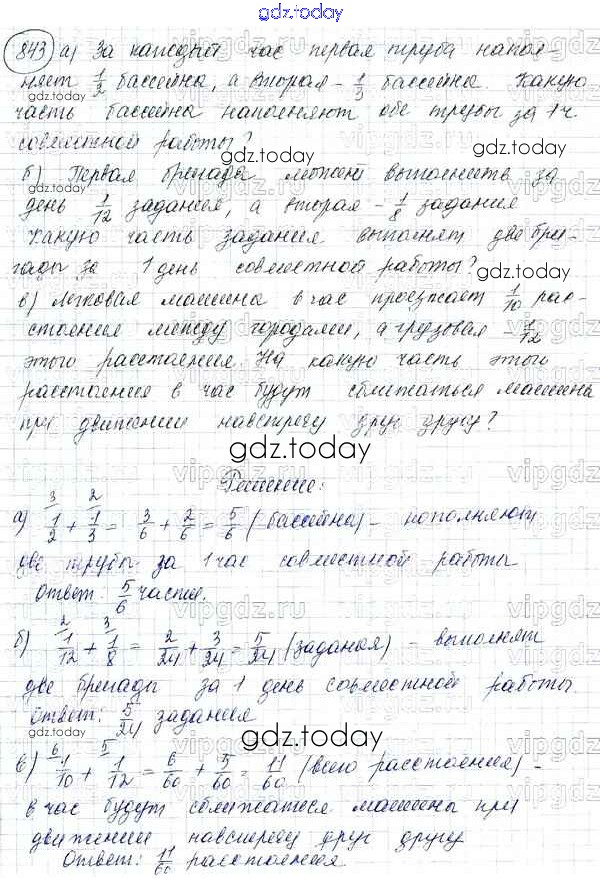 gdz.today
843 а) За каждый час первая труба напол-
няет 1/2 бассейна, а вторая – 1/3 бассейна. Какую
часть бассейна наполняют обе трубы за 1 ч
совместной работы?
б) Первая бригада может выполнить за
день 1/12 задания, а вторая – 1/8 задания
Какую часть задания выполнят две бри-
гады за 1 день совместной работы?
в) Легковая машина в час проезжает 1/10 рас-
стояния между городами, а грузовая – 1/12
этого расстояния. На какую часть этого
расстояния в час будут сближаться машины
при движении навстречу друг другу?
gdz.today
Решение:
а) 1/2 (3) + 1/3 (2) = 3/6 + 2/6 = 5/6 (бассейна) – наполняют
две трубы за 1 час совместной работы
Ответ: 5/6 части.
б) 1/12 (2) + 1/8 (3) = 2/24 + 3/24 = 5/24 (задания) – выполнят
две бригады за 1 день совместной работы.
Ответ: 5/24 задания
в) 1/10 (6) + 1/12 (5) = 6/60 + 5/60 = 11/60 (всего расстояния) –
в час будут сближатся машины при
движении навстречу друг другу
Ответ: 11/60 расстояния